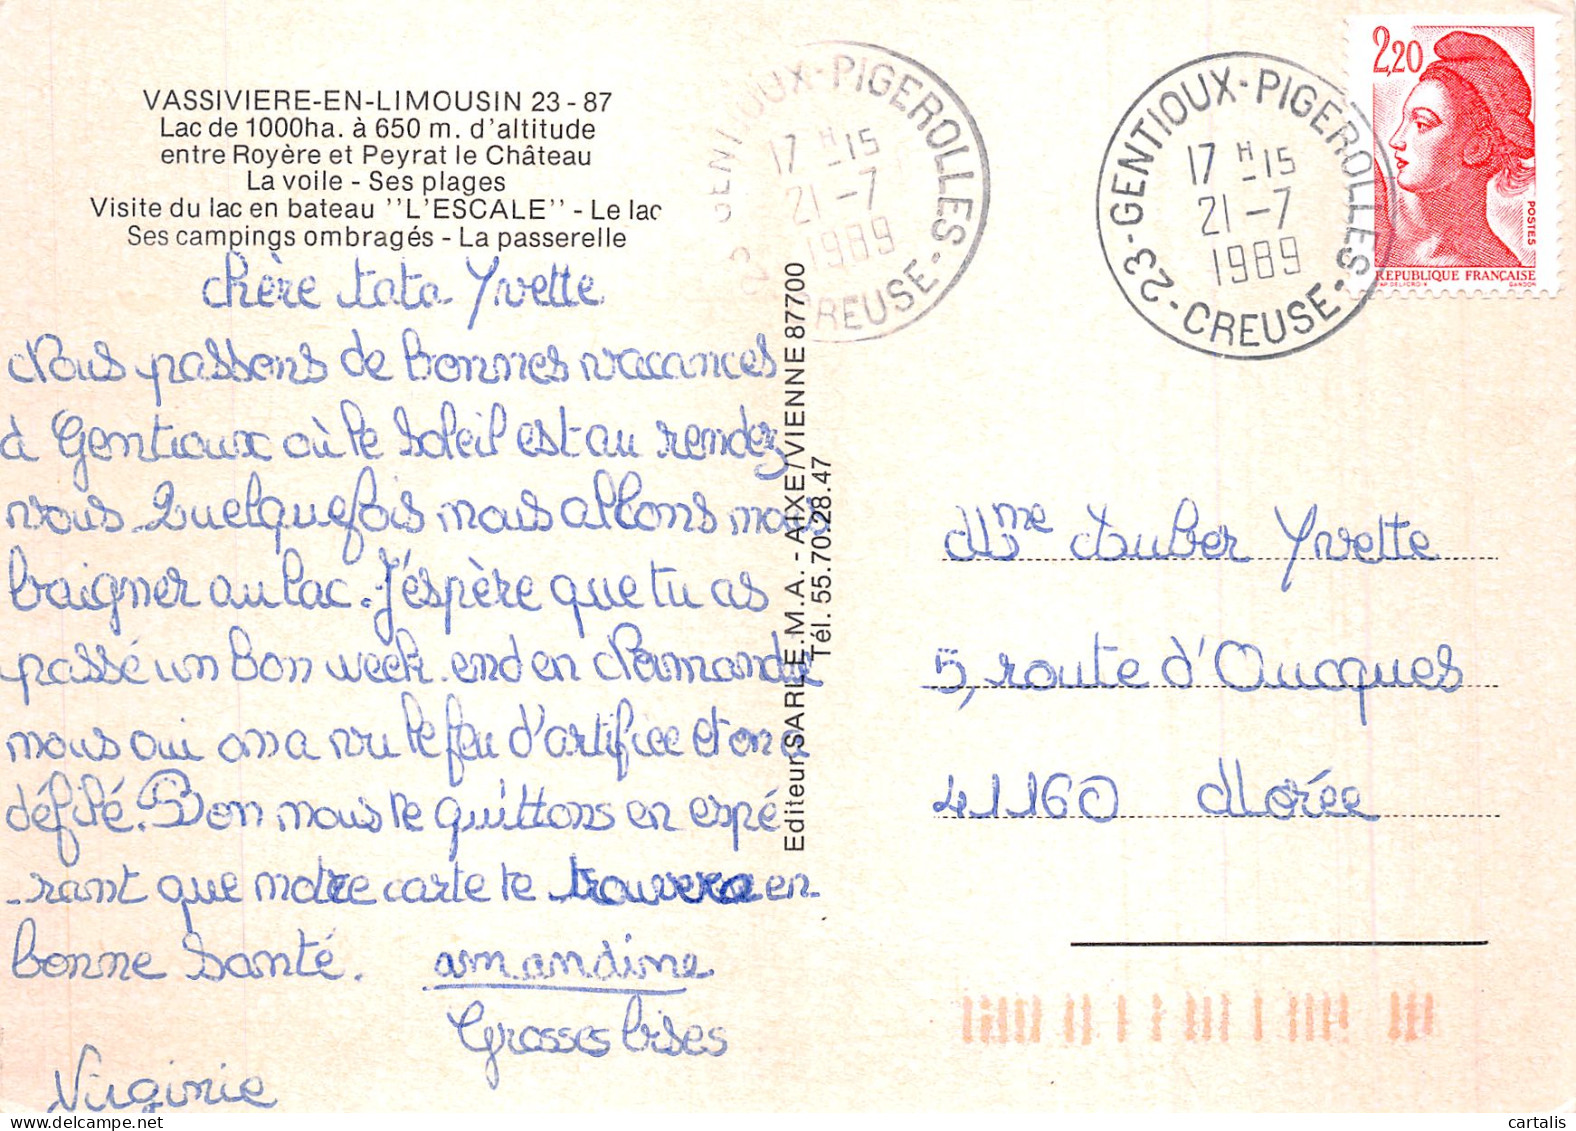 VASSIVIERE-EN-LIMOUSIN 23 - 87
Lac de 1000ha. à 650 m. d'altitude
entre Royère et Peyrat le Château
La voile - Ses plages
Visite du lac en bateau ''L'ESCALE'' - Le lac
Ses campings ombragés - La passerelle
chère tata Yvette
Nous passons de bonnes vacances
à Gentioux où le soleil est au rendez
vous. Quelquefois nous allons nous
baigner au lac. J'éspère que tu as
passé un bon week-end en Normandie
nous oui on a vu le feu d'artifice et on a
défilé. Bon nous te quittons en espé
-rant que notre carte te trouvera en
bonne santé. amandine
Grosses bises
Virginie
Editeur SARL E.M.A. - AIXE/VIENNE 87700
Tél. 55.70.28.47
GENTIOUX-PIGEROLLES
17 H -15
21 -7
1989
23 - CREUSE -
23-GENTIOUX-PIGEROLLES
17 H -15
21 -7
1989
- CREUSE -
2,20
POSTES
REPUBLIQUE FRANÇAISE
GANDON
Mme Auber Yvette
5, route d'Oucques
41160 Morée
cartalis